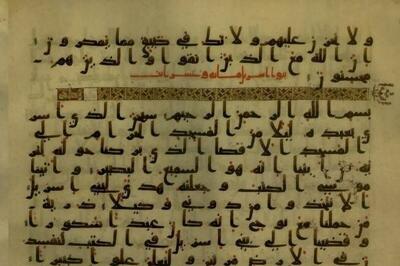 ولا تحزن عليهم ولا تك في ضيق مما يمكرون
ان الله مع الذين اتقوا والذين هم
محسنون
بسم الله الرحمن الرحيم سبحن الذي اسر
ى بعبده ليلا من المسجد الحرام الى
المسجد الاقصا الذي بركنا حوله لنر
يه من ايتنا انه هو السميع البصير واتينا
موسى الكتب وجعلنه هدى لبني اسريل
الا تتخذوا من دوني وكيلا ذرية
من حملنا مع نوح انه كان عبدا شكورا
وقضينا الى بني اسريل في الكتب لتفسد
ن في الارض مرتين ولتعلن علوا كبيرا